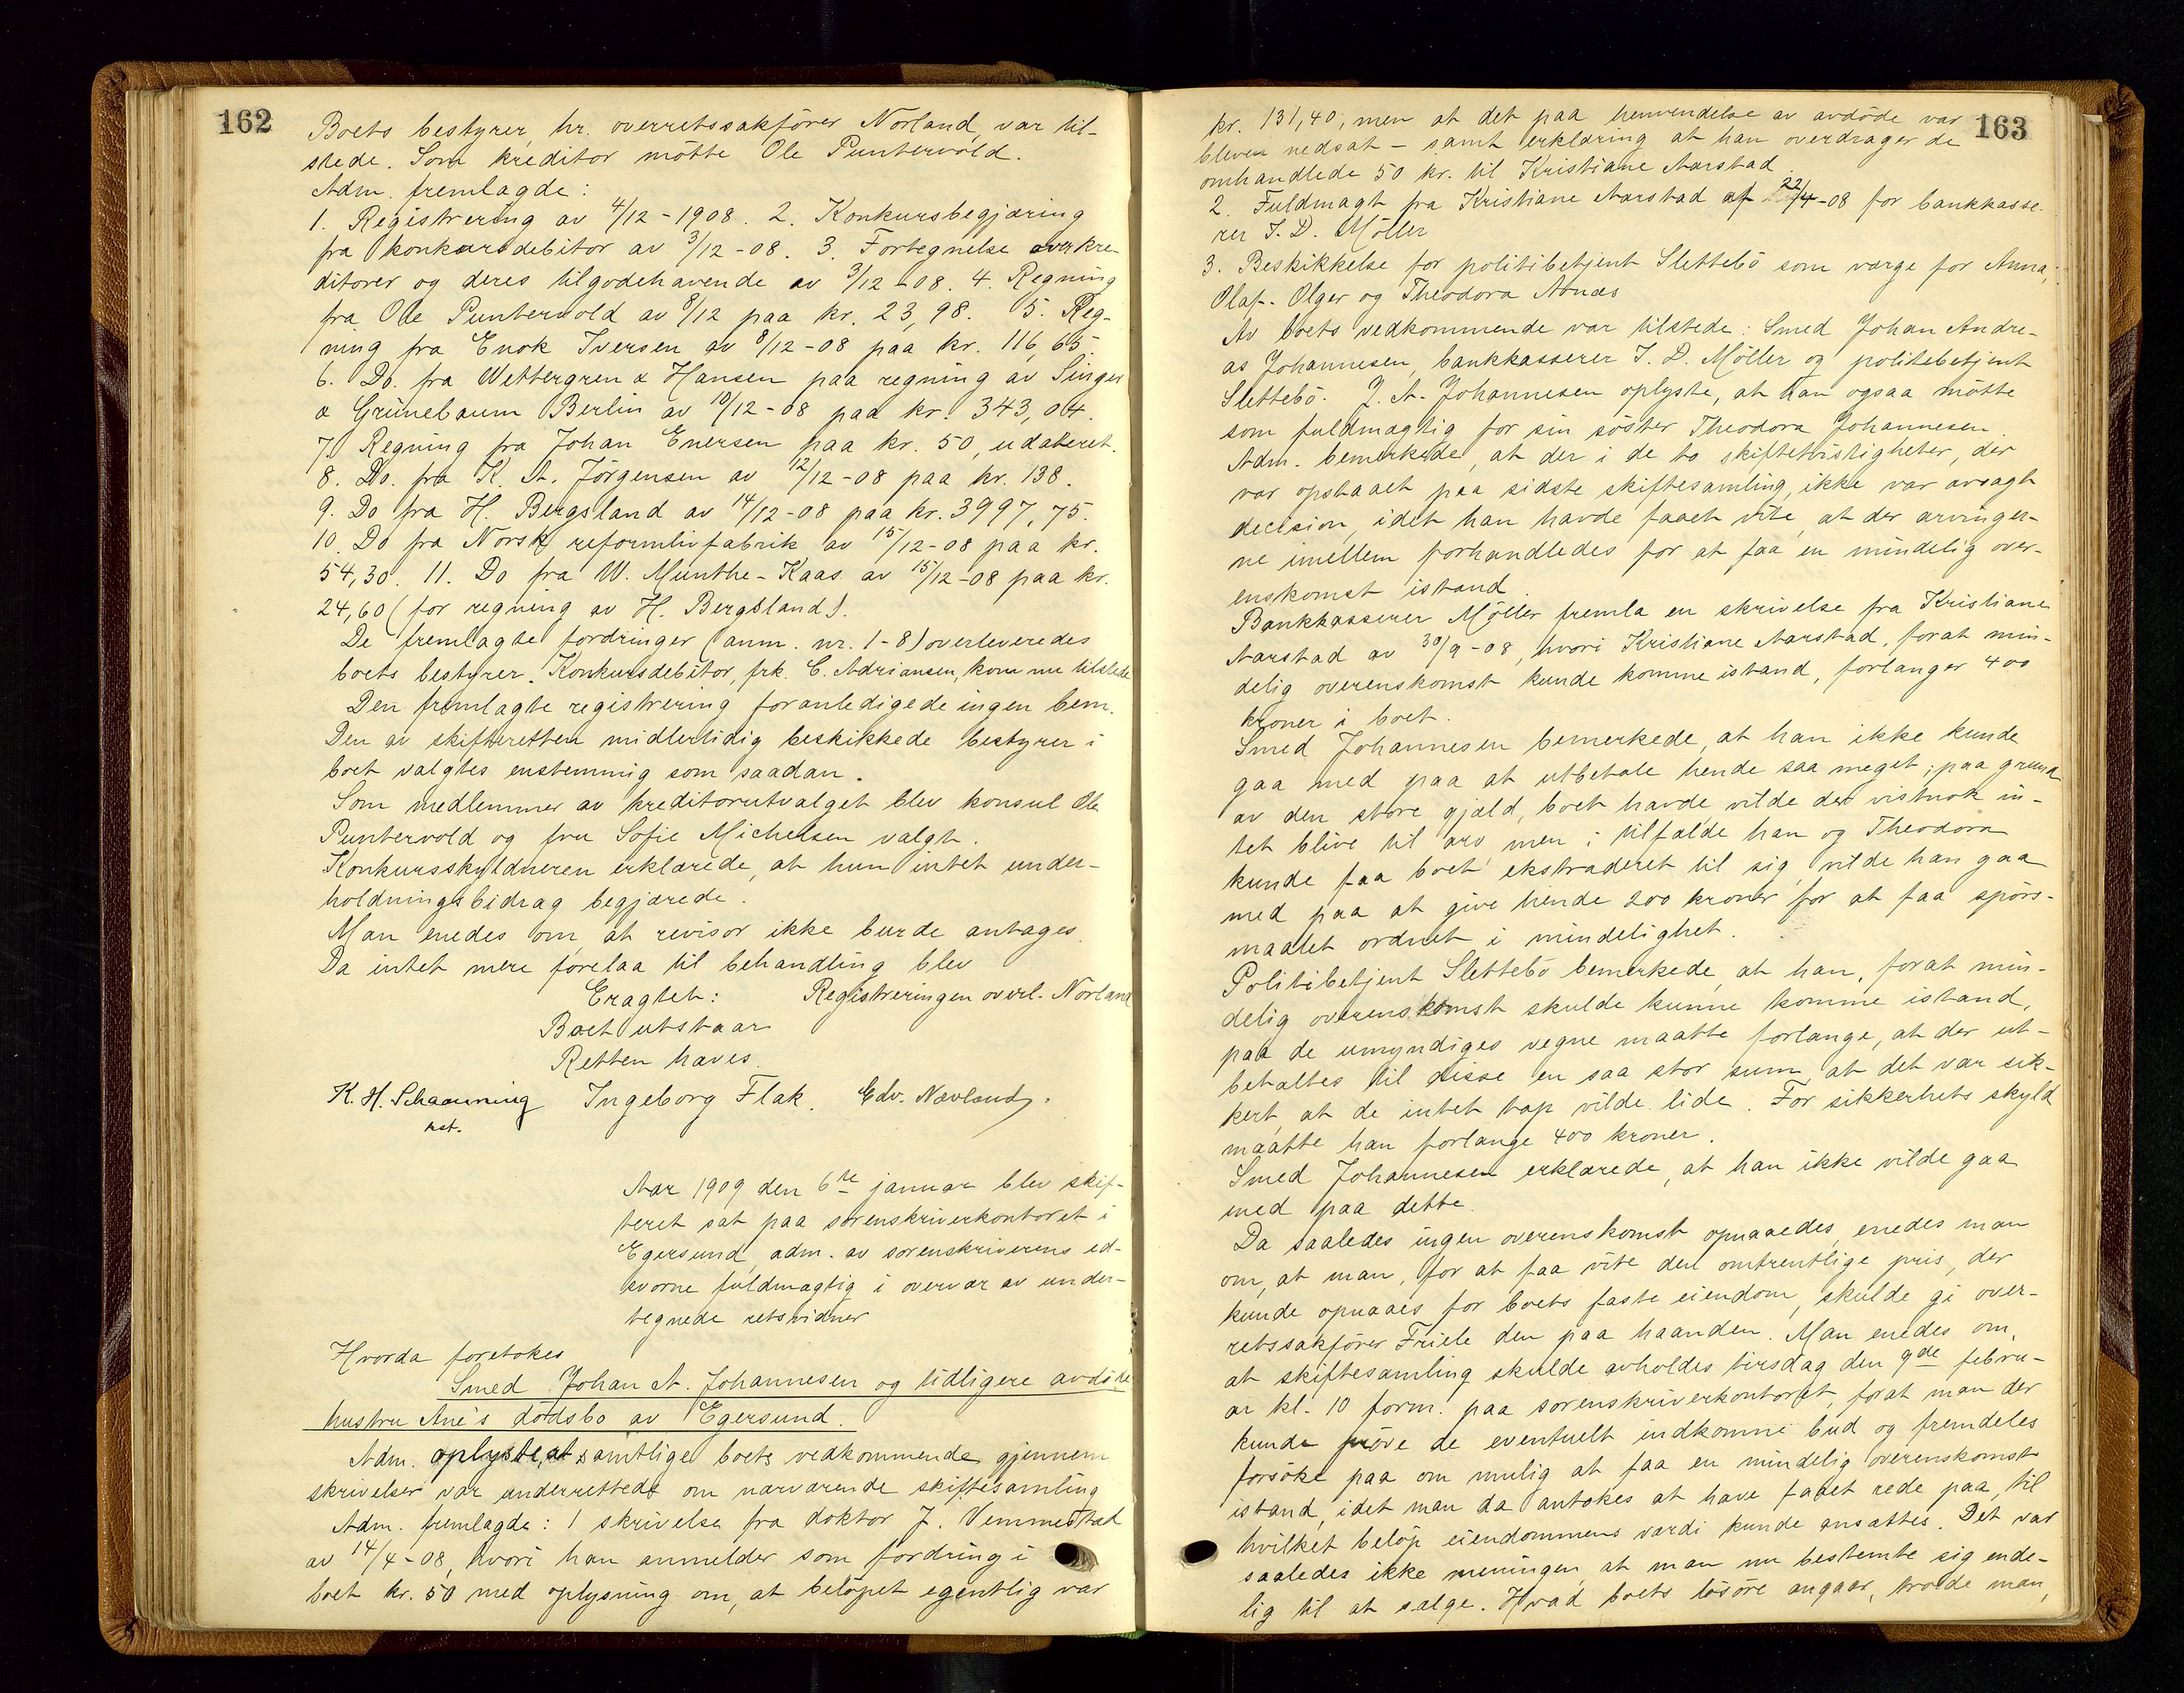 162
Boets bestyrer, hr. overretssakförer Norland, var til-
stede. Som kreditor mötte Ole Puntervold.
Adm. fremlagde:
1. Registrering av 4/12-1908. 2. Konkursbegjæring
fra konkursdebitor av 3/12-08. 3. Fortegnelse over kre-
ditorer og deres tilgodehavende av 3/12-08. 4. Regning
fra Ole Puntervold av 8/12 paa kr. 23,98. 5. Reg-
ning fra Enok Iversen av 8/12-08 paa kr. 116,65.
6. Do. fra Wettergren & Hansen paa regning av Singer
& Grünebaum Berlin av 10/12-08 paa kr. 343,04.
7. Regning fra Johan Enersen paa kr. 50, udateret.
8. Do. fra K. A. Jörgensen av 12/12-08 paa kr. 138.
9. Do fra H. Bergsland av 14/12-08 paa kr. 3997,75.
10. Do fra Norsk reformlivfabrik av 15/12-08 paa kr.
54,30. 11. Do fra W. Munthe-Kaas av 15/12-08 paa kr.
24,60 (for regning av H. Bergsland).
De fremlagte fordringer (anm. nr. 1-8) overleveredes
boets bestyrer. Konkursdebitor, frk. C. Adriansen, kom nu tilstede
Den fremlagte registrering foranledigede ingen bem.
Den av skifteretten midlertidig beskikkede bestyrer i
boet valgtes enstemmig som saadan.
Som medlemmer av kreditorutvalget blev konsul Ole
Puntervold og fru Sofie Michelsen valgt.
Konkursskyldneren erklærede, at hun intet under-
holdningsbidrag begjærede.
Man enedes om at revisor ikke burde antages.
Da intet mere forelaa til behandling blev
Eragtet: Registreringen overl. Norland
Boet utstaar
Retten hæves.
K. H. Schaanning Ingeborg Flak. Edv. Nævland.
kst.
Aar 1909 den 6te januar blev skif-
teret sat paa sorenskriverkontoret i
Egersund, adm. av sorenskriverens ed-
svorne fuldmægtig i overvær av under-
tegnede retsvidner
Hvorda foretokes
Smed Johan A. Johannesen og tidligere avdöde
hustru Ane's dödsbo av Egersund.
Adm. oplyste, at samtlige boets vedkommende gjennem
skrivelser var underrettede om nærværende skiftesamling
Adm. fremlagde: 1 skrivelse fra doktor J. Vemmestad
av 14/4-08, hvori han anmelder som fordring i
boet kr. 50 med oplysning om, at belöpet egentlig var
163
kr. 131,40, men at det paa henvendelse av avdöde var
bleven nedsat - samt erklæring at han overdrager de
omhandlede 50 kr. til Kristiane Aarstad
2. Fuldmagt fra Kristiane Aarstad af 22/4-08 for bankkasse-
rer I. D. Möller
3. Beskikkelse for politibetjent Slettebö som værge for Anna,
Olaf- Olger og Theodora Aanæs
Av boets vedkommende var tilstede: Smed Johan Andre-
as Johannesen, bankkasserer I. D. Möller og politibetjent
Slettebö. J. A. Johannesen oplyste, at han ogsaa mötte
som fuldmægtig for sin söster Theodora Johannesen.
Adm. bemerkede, at der i de to skiftetvistigheter, der
var opstaaet paa sidste skiftesamling, ikke var avsagt
decision, idet han havde faaet vite, at der arvinger-
ne imellem forhandledes for at faa en mindelig over-
enskomst istand.
Bankkasserer Möller fremla en skrivelse fra Kristiane
Aarstad av 30/9-08, hvori Kristiane Aarstad, forat min-
delig overenskomst kunde komme istand, forlanger 400
kroner i boet.
Smed Johannesen bemerkede, at han ikke kunde
gaa med paa at utbetale hende saa meget; paa grund
av den store gjæld, boet havde vilde der vistnok in-
tet blive til arv men i tilfælde han og Theodora
kunde faa boet ekstraderet til sig, vilde han gaa
med paa at give hende 200 kroner for at faa spörs-
maalet ordnet i mindelighet.
Politibetjent Slettebö bemerkede, at han, forat min-
delig overenskomst skulde kunne komme istand,
paa de umyndiges vegne maatte forlange, at der ut-
betaltes til disse en saa stor sum, at det var sik-
kert, at de intet tap vilde lide. For sikkerhets skyld
maatte han forlange 400 kroner.
Smed Johannesen erklærede, at han ikke vilde gaa
med paa dette.
Da saaledes ingen overenskomst opnaaedes, enedes man
om, at man, for at faa vite den omtrentlige pris, der
kunde opnaaes for boets faste eiendom, skulde gi over-
retssakförer Friele den paa haanden. Man enedes om,
at skiftesamling skulde avholdes tirsdag den 9de febru-
ar kl. 10 form. paa sorenskriverkontoret, forat man der
kunde pröve de eventuelt indkomne bud og fremdeles
forsöke paa om mulig at faa en mindelig overenskomst
istand, idet man da antokes at have faaet rede paa, til
hvilket belöp eiendommens værdi kunde ansættes. Det var
saaledes ikke meningen, at man nu bestemte sig ende-
lig til at sælge. Hvad boets lösöre angaar, trode man,